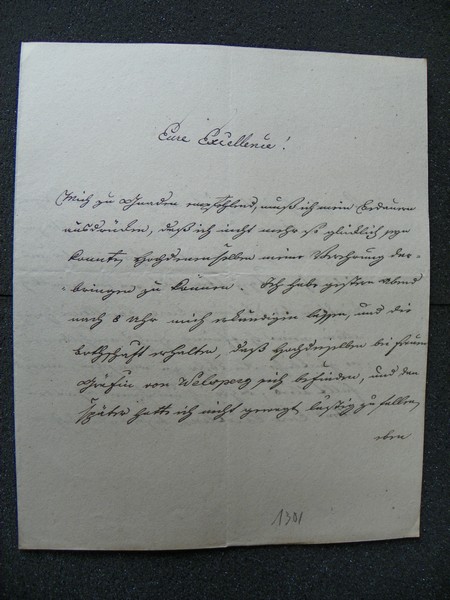 Eure Excellence!
Mich zu Gnaden empfehlend, muß ich mein Bedauern
ausdrücken, daß ich nicht mehr so glücklich seyn
konnte, Hochdenenselben meine Verehrung dar-
bringen zu können. Ich habe gestern Abend
nach 8 Uhr mich erkundigen lassen, und die
Bothschaft erhalten, daß Hochdieselben bei Frauen
Gräfin von Welsperg sich befinden, und dan
später hatte ich nicht gewagt lästig zu fallen,
eben
1301